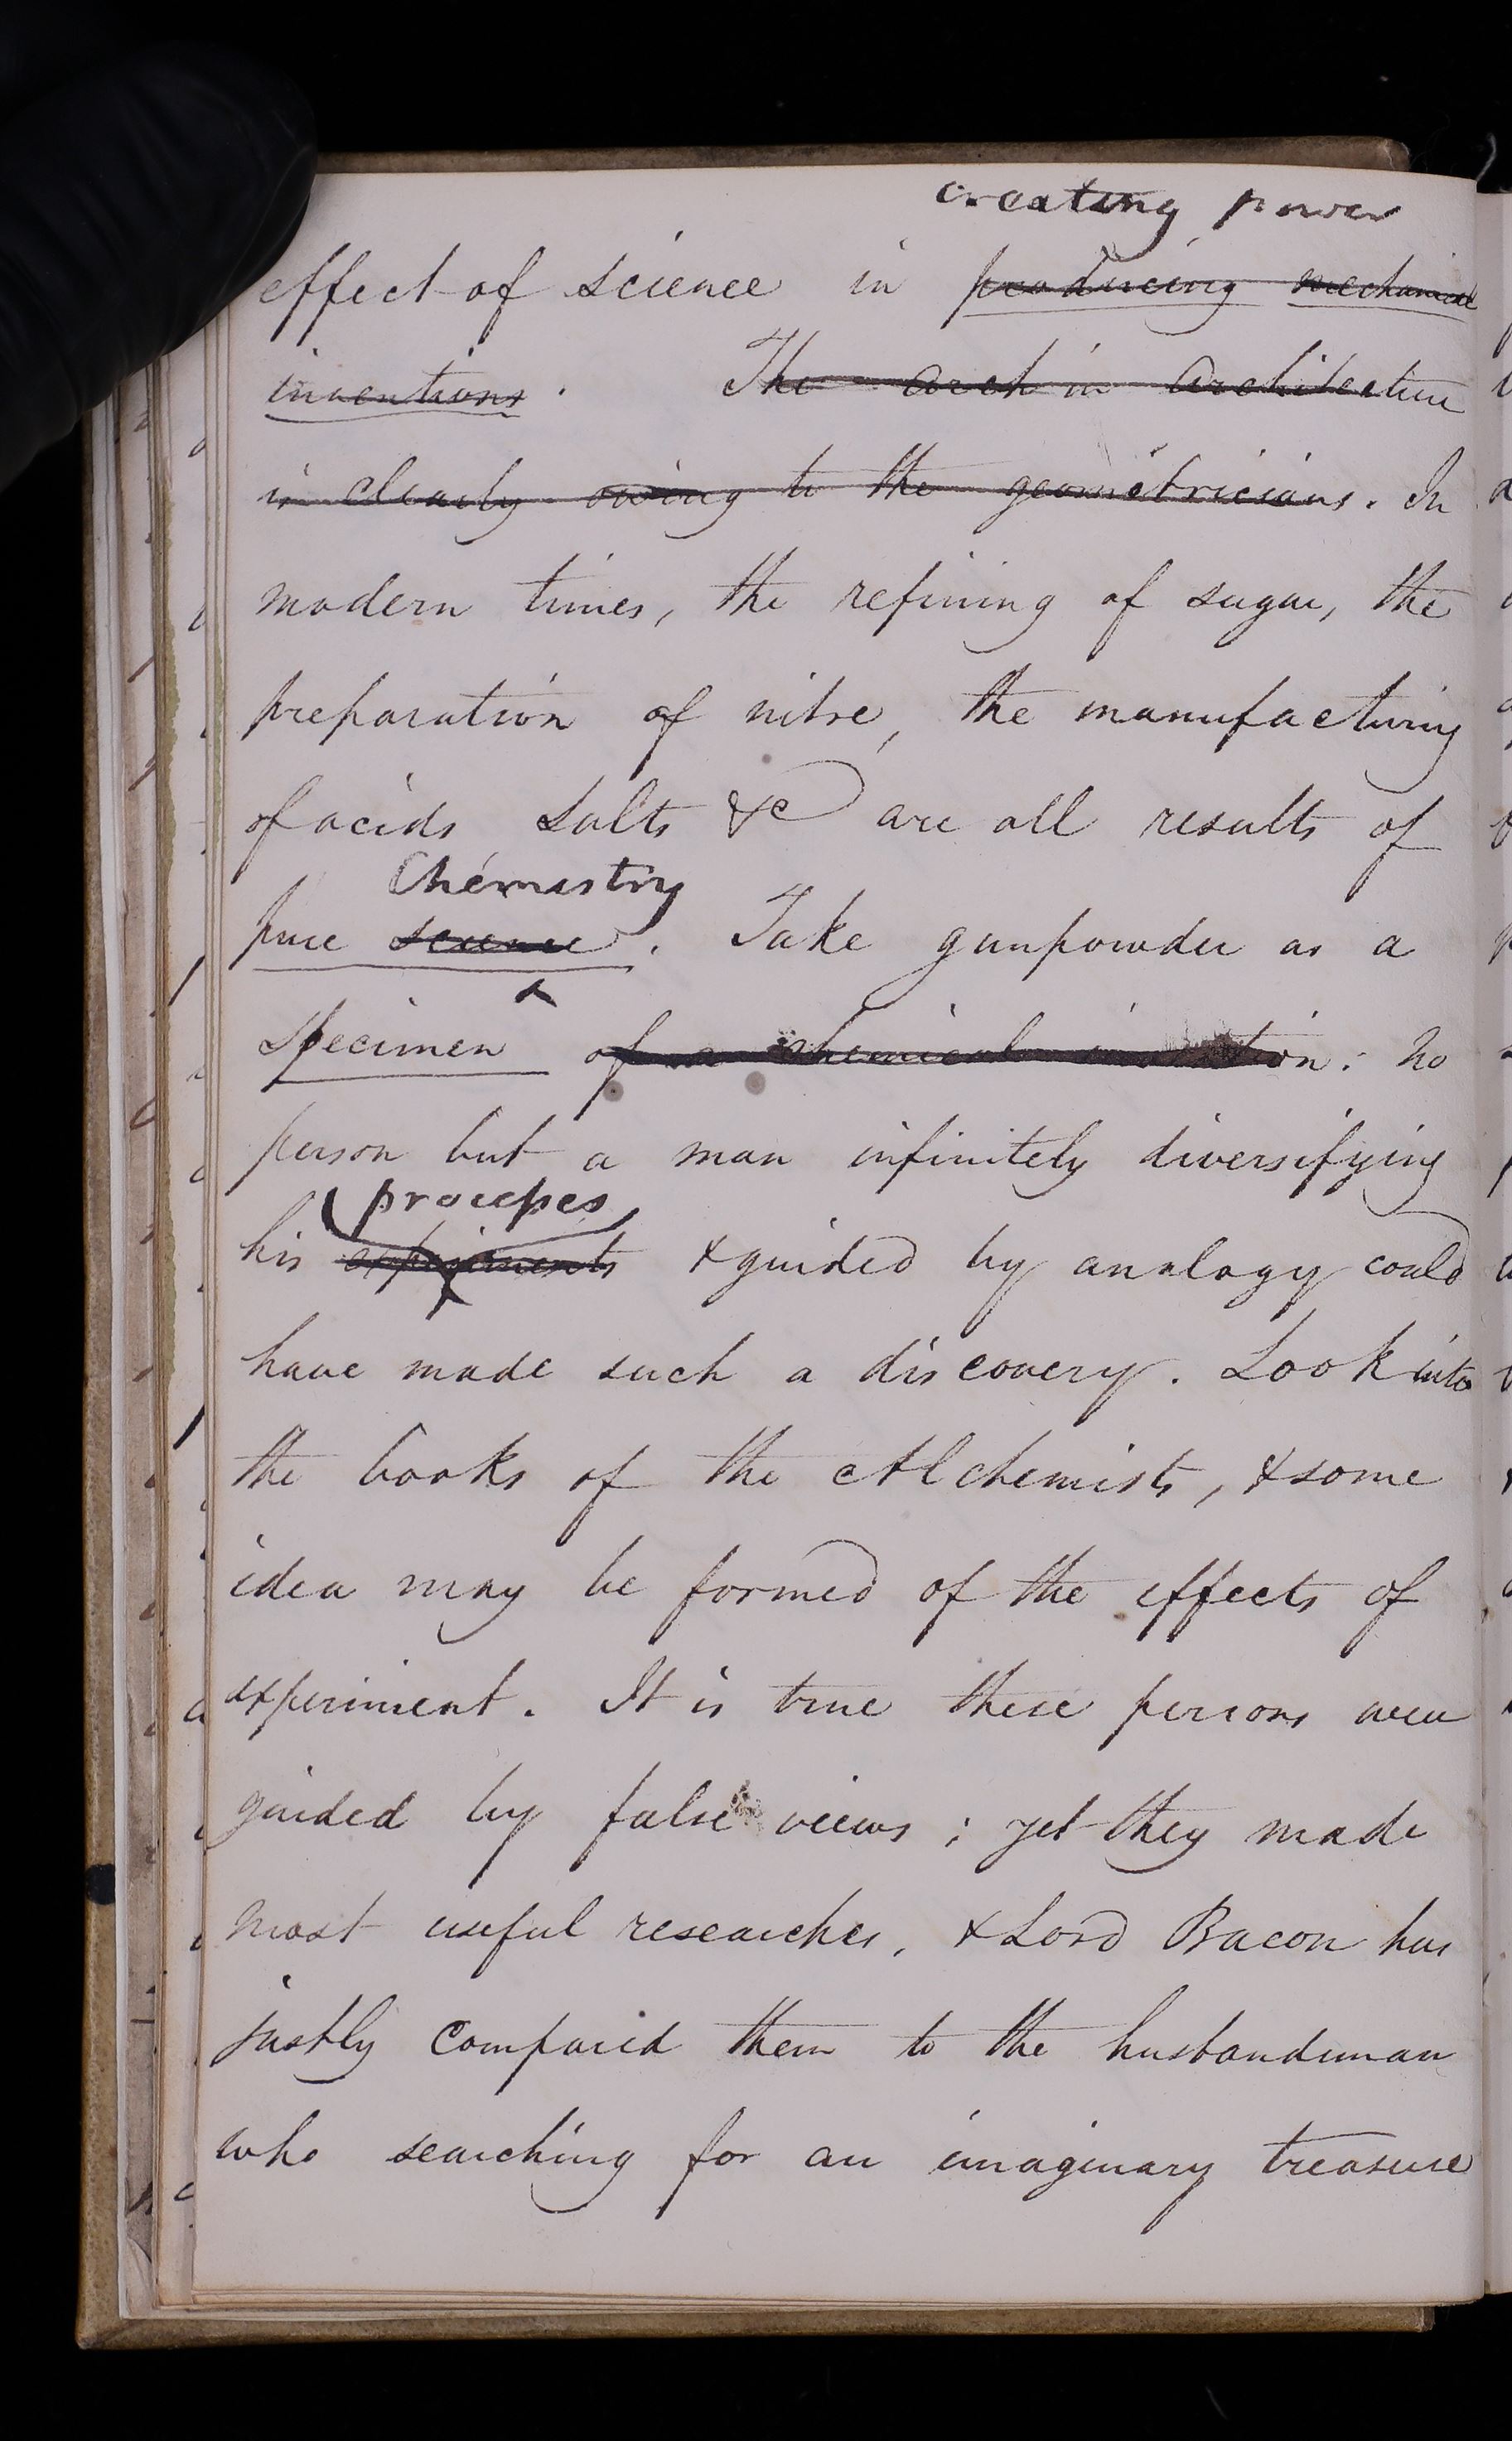 creating power
effect of science in producing mechanical
inventions. The arch in Architecture
is clearly owing to the geometricians. In
modern times, the refining of sugar, the
preparation of nitre, the manufacturing
of acids salts &c are all results of
Chemistry
pure science. Take gunpowder as a
specimen of a chemical invention: no
person but a man infinitely diversifying
processes
his experiments & guided by analogy could
have made such a discovery. Look into
the books of the Alchemists, & some
idea may be formed of the effects of
experiment. It is true these persons were
guided by false views; yet they made
most useful researches, & Lord Bacon has
justly compared them to the husbandman
who searching for an imaginary treasure